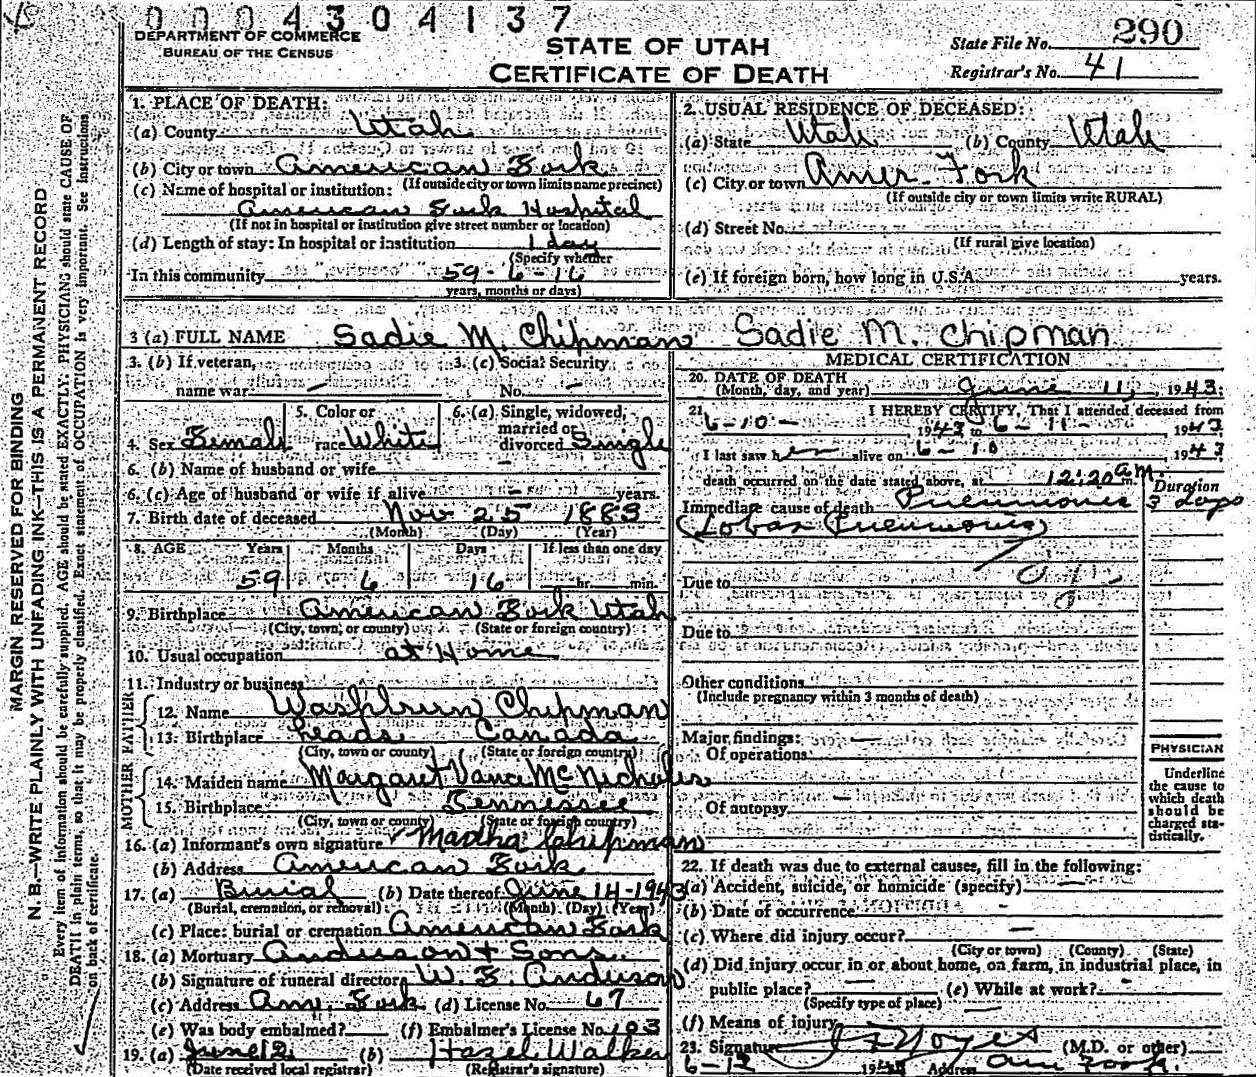 0004304137
DEPARTMENT OF COMMERCE
BUREAU OF THE CENSUS
STATE OF UTAH
CERTIFICATE OF DEATH
State File No. 290
Registrar's No. 41
MARGIN RESERVED FOR BINDING
N. B.—WRITE PLAINLY WITH UNFADING INK—THIS IS A PERMANENT RECORD
Every item of information should be carefully supplied. AGE should be stated EXACTLY. PHYSICIANS should state CAUSE OF
DEATH in plain terms, so that it may be properly classified. Exact statement of OCCUPATION is very important. See instructions
on back of certificate.
1. PLACE OF DEATH:
(a) County Utah
(b) City or town American Fork
(If outside city or town limits name precinct)
(c) Name of hospital or institution:
American Fork Hospital
(If not in hospital or institution give street number or location)
(d) Length of stay: In hospital or institution 1 day
(Specify whether
In this community 59-6-16
years, months or days)
2. USUAL RESIDENCE OF DECEASED:
(a) State Utah (b) County Utah
(c) City or town Amer. Fork
(If outside city or town limits write RURAL)
(d) Street No.
(If rural give location)
(e) If foreign born, how long in U.S.A. years.
3 (a) FULL NAME Sadie M. Chipman Sadie M. Chipman
3. (b) If veteran, 3. (c) Social Security
name war — No. —
4. Sex Female 5. Color or race White 6. (a) Single, widowed, married or divorced Single
6. (b) Name of husband or wife —
6. (c) Age of husband or wife if alive — years.
7. Birth date of deceased Nov 25 1883
(Month) (Day) (Year)
8. AGE Years Months Days If less than one day
59 6 16 hr. min.
9. Birthplace American Fork Utah
(City, town, or county) (State or foreign country)
10. Usual occupation at Home
11. Industry or business
FATHER
12. Name Washburn Chipman
13. Birthplace Leads Canada
(City, town or county) (State or foreign country)
MOTHER
14. Maiden name Margaret Vana McNicholes
15. Birthplace Tennessee
(City, town or county) (State or foreign country)
16. (a) Informant's own signature Martha Chipman
(b) Address American Fork
17. (a) Burial (b) Date thereof June 14-1943
(Burial, cremation, or removal) (Month) (Day) (Year)
(c) Place: burial or cremation American Fork
18. (a) Mortuary Anderson & Sons
(b) Signature of funeral director W. E. Anderson
(c) Address Am. Fork (d) License No. 67
(e) Was body embalmed? (f) Embalmer's License No. 103
19. (a) June 12 (b) Hazel Walker
(Date received local registrar) (Registrar's signature)
MEDICAL CERTIFICATION
20. DATE OF DEATH
(Month, day, and year) June 11, 1943.
21. I HEREBY CERTIFY, That I attended deceased from
6-10- 1943 to 6-11- 1943
I last saw her alive on 6-10 1943
death occurred on the date stated above, at 12:20 a.m.
Duration
Immediate cause of death Pneumonia 3 days
(Lobar Pneumonia)
Due to
Due to
Other conditions
(Include pregnancy within 3 months of death)
Major findings: —
Of operations
Of autopsy —
PHYSICIAN
Underline
the cause to
which death
should be
charged sta-
tistically.
22. If death was due to external causes, fill in the following:
(a) Accident, suicide, or homicide (specify) —
(b) Date of occurrence -
(c) Where did injury occur? —
(City or town) (County) (State)
(d) Did injury occur in or about home, on farm, in industrial place, in
public place? — (e) While at work? -
(Specify type of place)
(f) Means of injury —
23. Signature Noyes (M.D. or other)
6-12 19 Address Am Fork